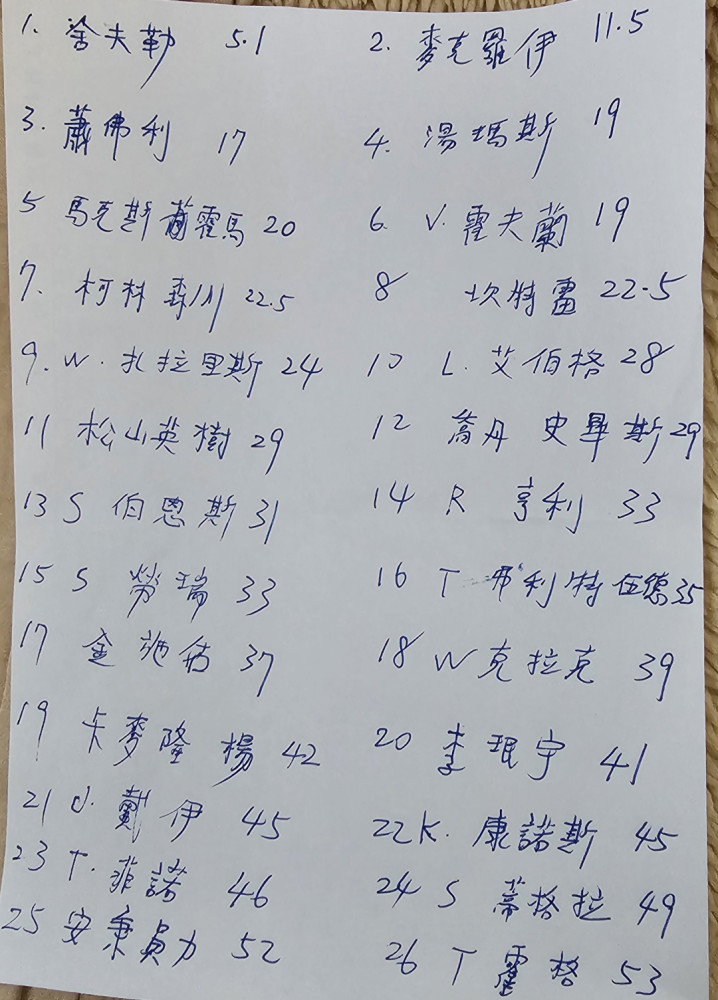 1. 舍夫勒 5.1 2. 麥克羅伊 11.5
3. 蕭佛利 17 4. 湯瑪斯 19
5 馬克斯 霍馬 20 6. V. 霍夫蘭 19
7. 柯林森川 22.5 8 坎特雷 22.5
9. W. 扎拉里斯 24 10 L. 艾伯格 28
11 松山英樹 29 12 喬丹 史畢斯 29
13 S 伯恩斯 31 14 R 亨利 33
15 S 勞瑞 33 16 T 弗利特伍德 35
17 金施佑 37 18 W 克拉克 39
19 卡麥隆 楊 42 20 李珉宇 41
21 J. 戴伊 45 22 K. 康諾斯 45
23 T. 菲諾 46 24 S 蒂格拉 49
25 安秉員力 52 26 T 霍格 53